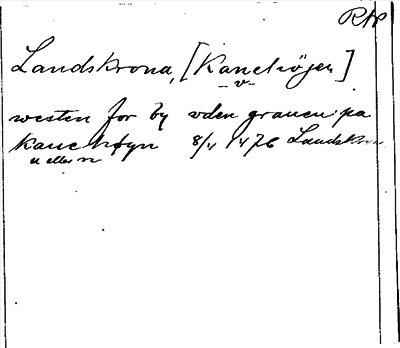 RAP
Landskrona, [Kanehöjen]
-v-
westen for by vden grauen: pa
Kanehøyn 8/4 1476 Landskrona
u eller n